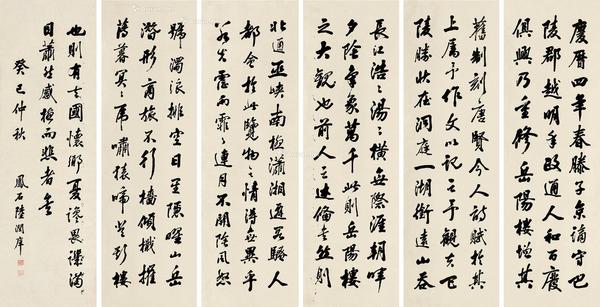 慶曆四年春滕子京謫守巴
陵郡越明年政通人和百廢
俱興乃重修岳陽樓增其
舊制刻唐賢今人詩賦於其
上屬予作文以記之予觀夫巴
陵勝狀在洞庭一湖銜遠山吞
長江浩々湯々橫無際涯朝暉
夕陰氣象萬千此則岳陽樓
之大觀也前人之述備矣然則
北通巫峽南極瀟湘遷客騷人
都會於此覽物之情得無異乎
若夫霪雨霏々連月不開陰風怒
號濁浪排空日星隱曜山岳
潛形商旅不行檣傾檝摧
薄暮冥々虎嘯猿啼登斯樓
也則有去國懷鄉憂讒畏譏滿
目蕭然感極而悲者矣
癸巳仲秋
鳳石陸潤庠